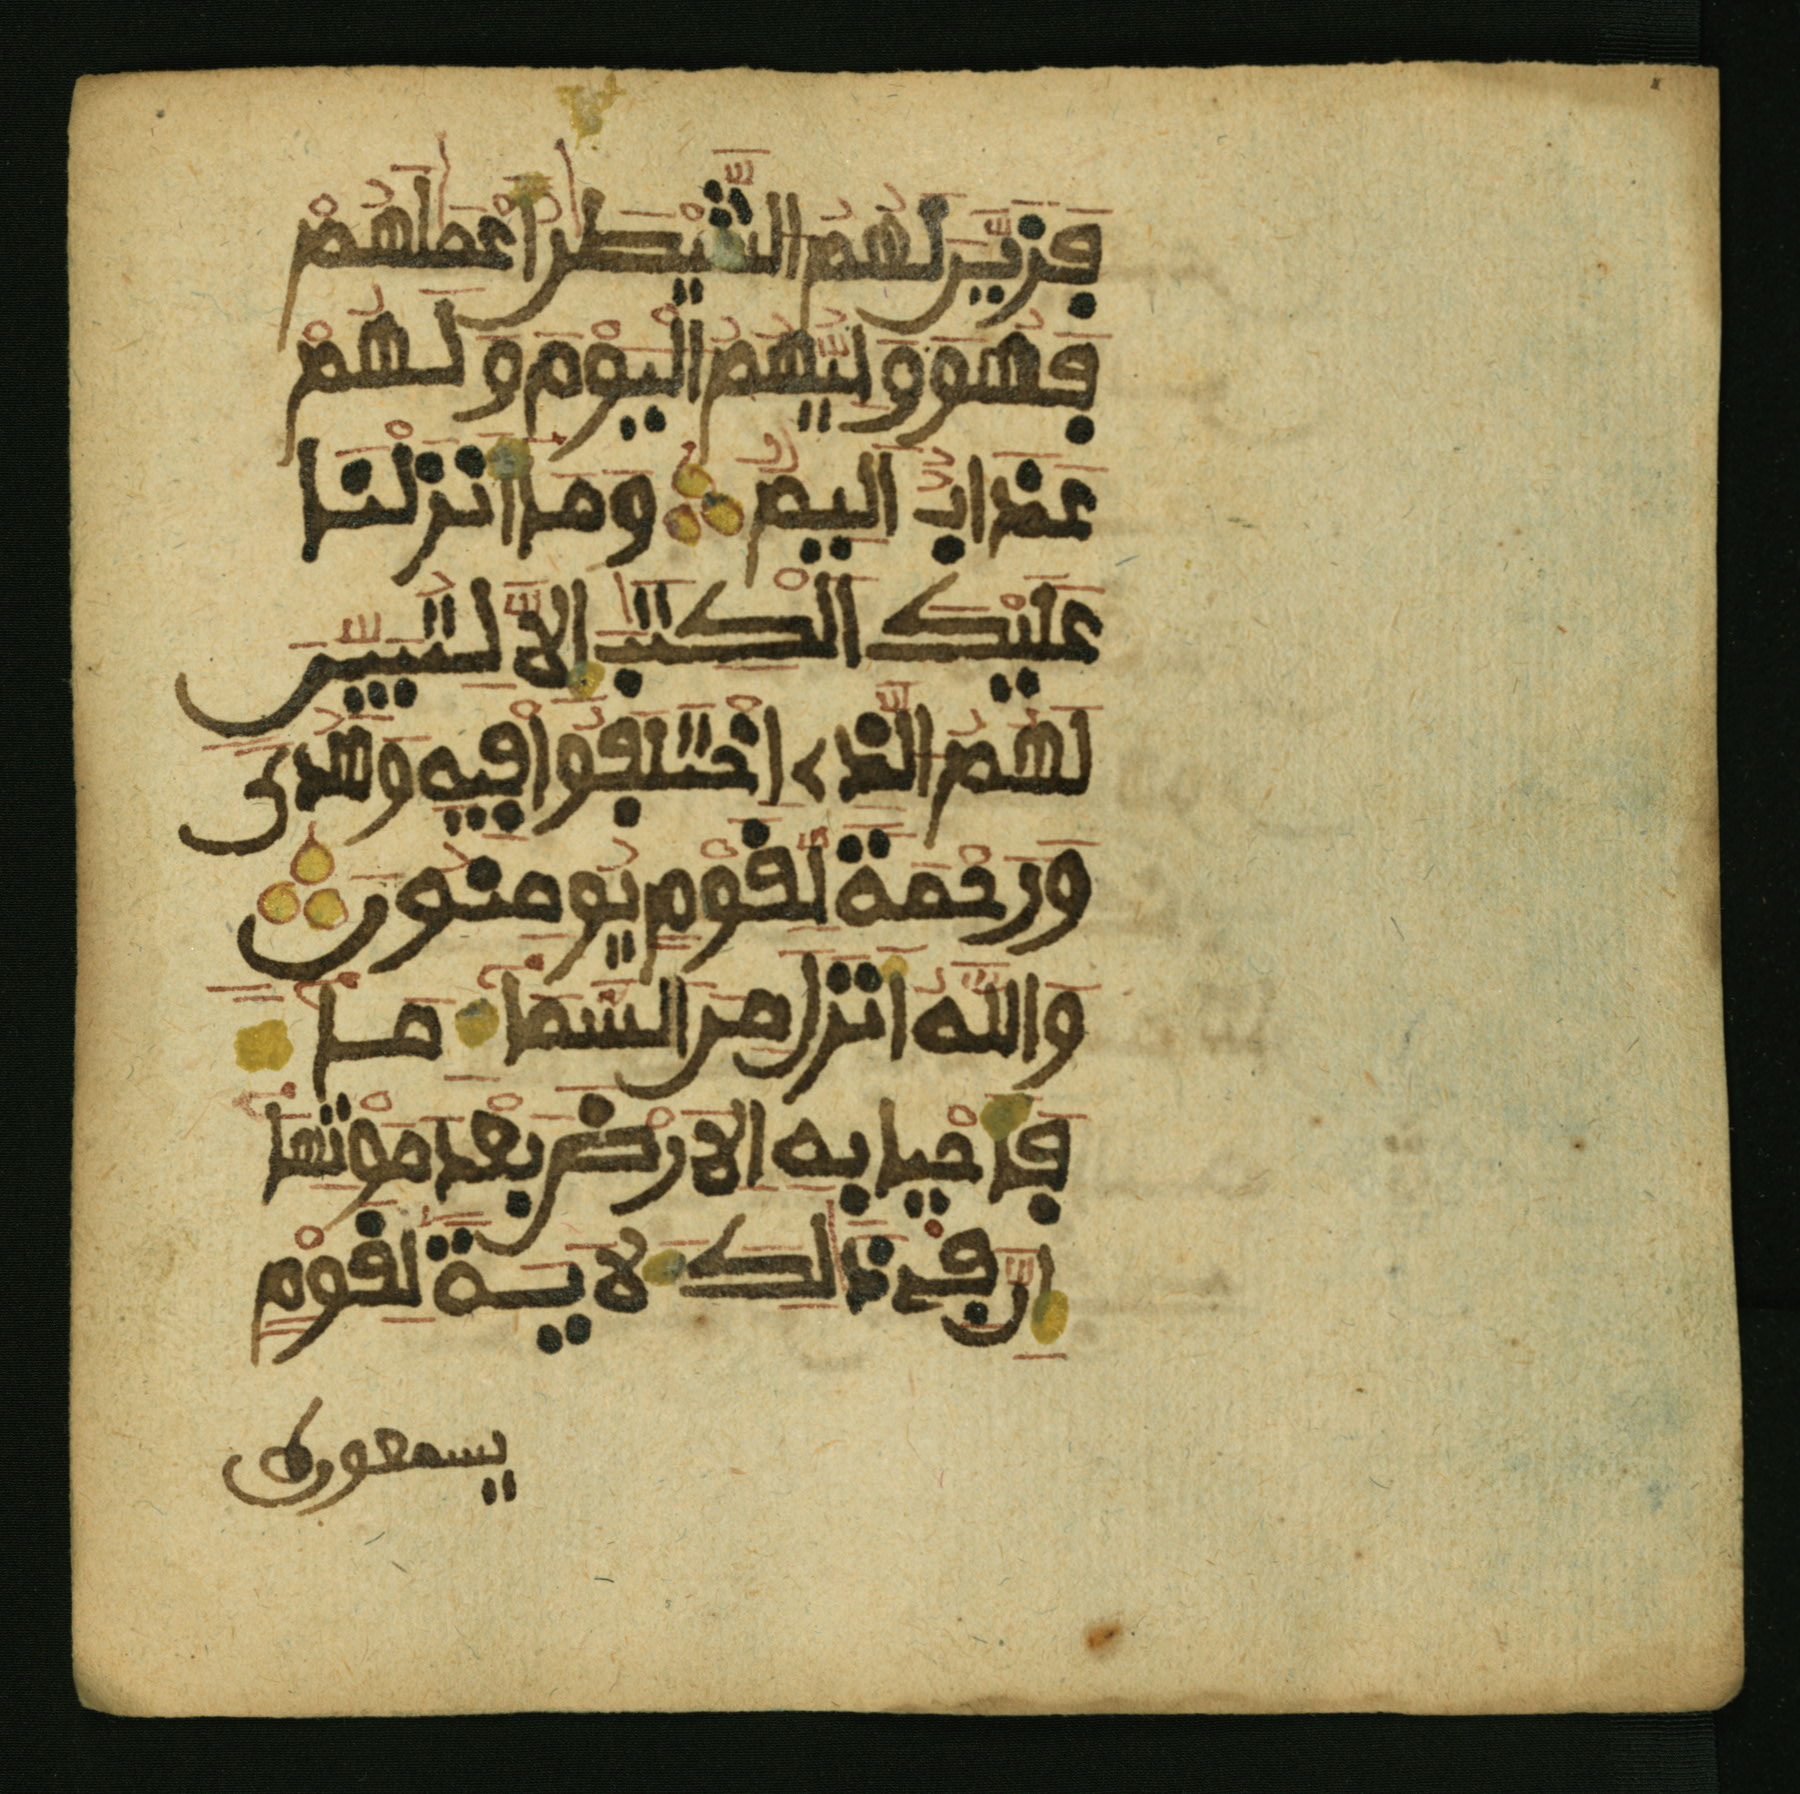 فَزَيَّنَ لَهُمُ الشَّيْطَٰنُ أَعْمَٰلَهُمْ
فَهُوَ وَلِيُّهُمُ الْيَوْمَ وَلَهُمْ
عَذَابٌ أَلِيمٌ وَمَا أَنزَلْنَا
عَلَيْكَ الْكِتَٰبَ إِلَّا لِتُبَيِّنَ
لَهُمُ الَّذِي اخْتَلَفُوا فِيهِ وَهُدًى
وَرَحْمَةً لِّقَوْمٍ يُومِنُونَ
وَاللَّهُ أَنزَلَ مِنَ السَّمَاءِ مَاءً
فَأَحْيَا بِهِ الْأَرْضَ بَعْدَ مَوْتِهَا
إِنَّ فِي ذَٰلِكَ لَأيَةً لِّقَوْمٍ
يسمعون